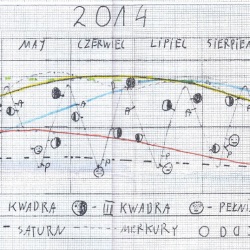 2014
MAJ CZERWIEC LIPIEC SIERPIEŃ
A A A A
P P P P
KWADRA - III KWADRA - PEŁNI
SATURN MERKURY